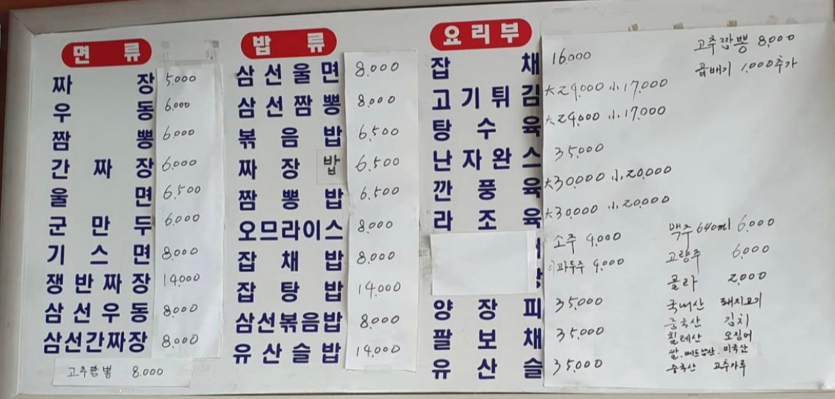 면 류
짜 장 5,000
우 동 6.000
짬 뽕 6,000
간 짜 장 6,000
울 면 6,500
군 만 두 6,000
기 스 면 8,000
쟁반짜장 14,000
삼선우동 8,000
삼선간짜장 8,000
고추짬뽕 8.000
밥 류
삼선울면 8.000
삼선짬뽕 8,000
볶 음 밥 6,500
짜 장 밥 6,500
짬 뽕 밥 6,500
오므라이스 8,000
잡 채 밥 8,000
잡 탕 밥 14,000
삼선볶음밥 8,000
유산슬밥 14,000
요리부
잡 채 16,000
고기튀김 大24,000 小17,000
탕 수 육 大24,000 小17,000
난자완스 35,000
깐 풍 육 大30,000 小20,000
라 조 육 大30,000 小20,000
소주 4,000
4,000
양 장 피 35,000
팔 보 채 35,000
유 산 슬 35,000
고추짬뽕 8,000
곱배기 1,000추가
맥주 640ml 6,000
고량주 6,000
콜라 2,000
국내산 돼지고기
중국산 김치
칠레산 오징어
쌀 미국산
중국산 고추가루